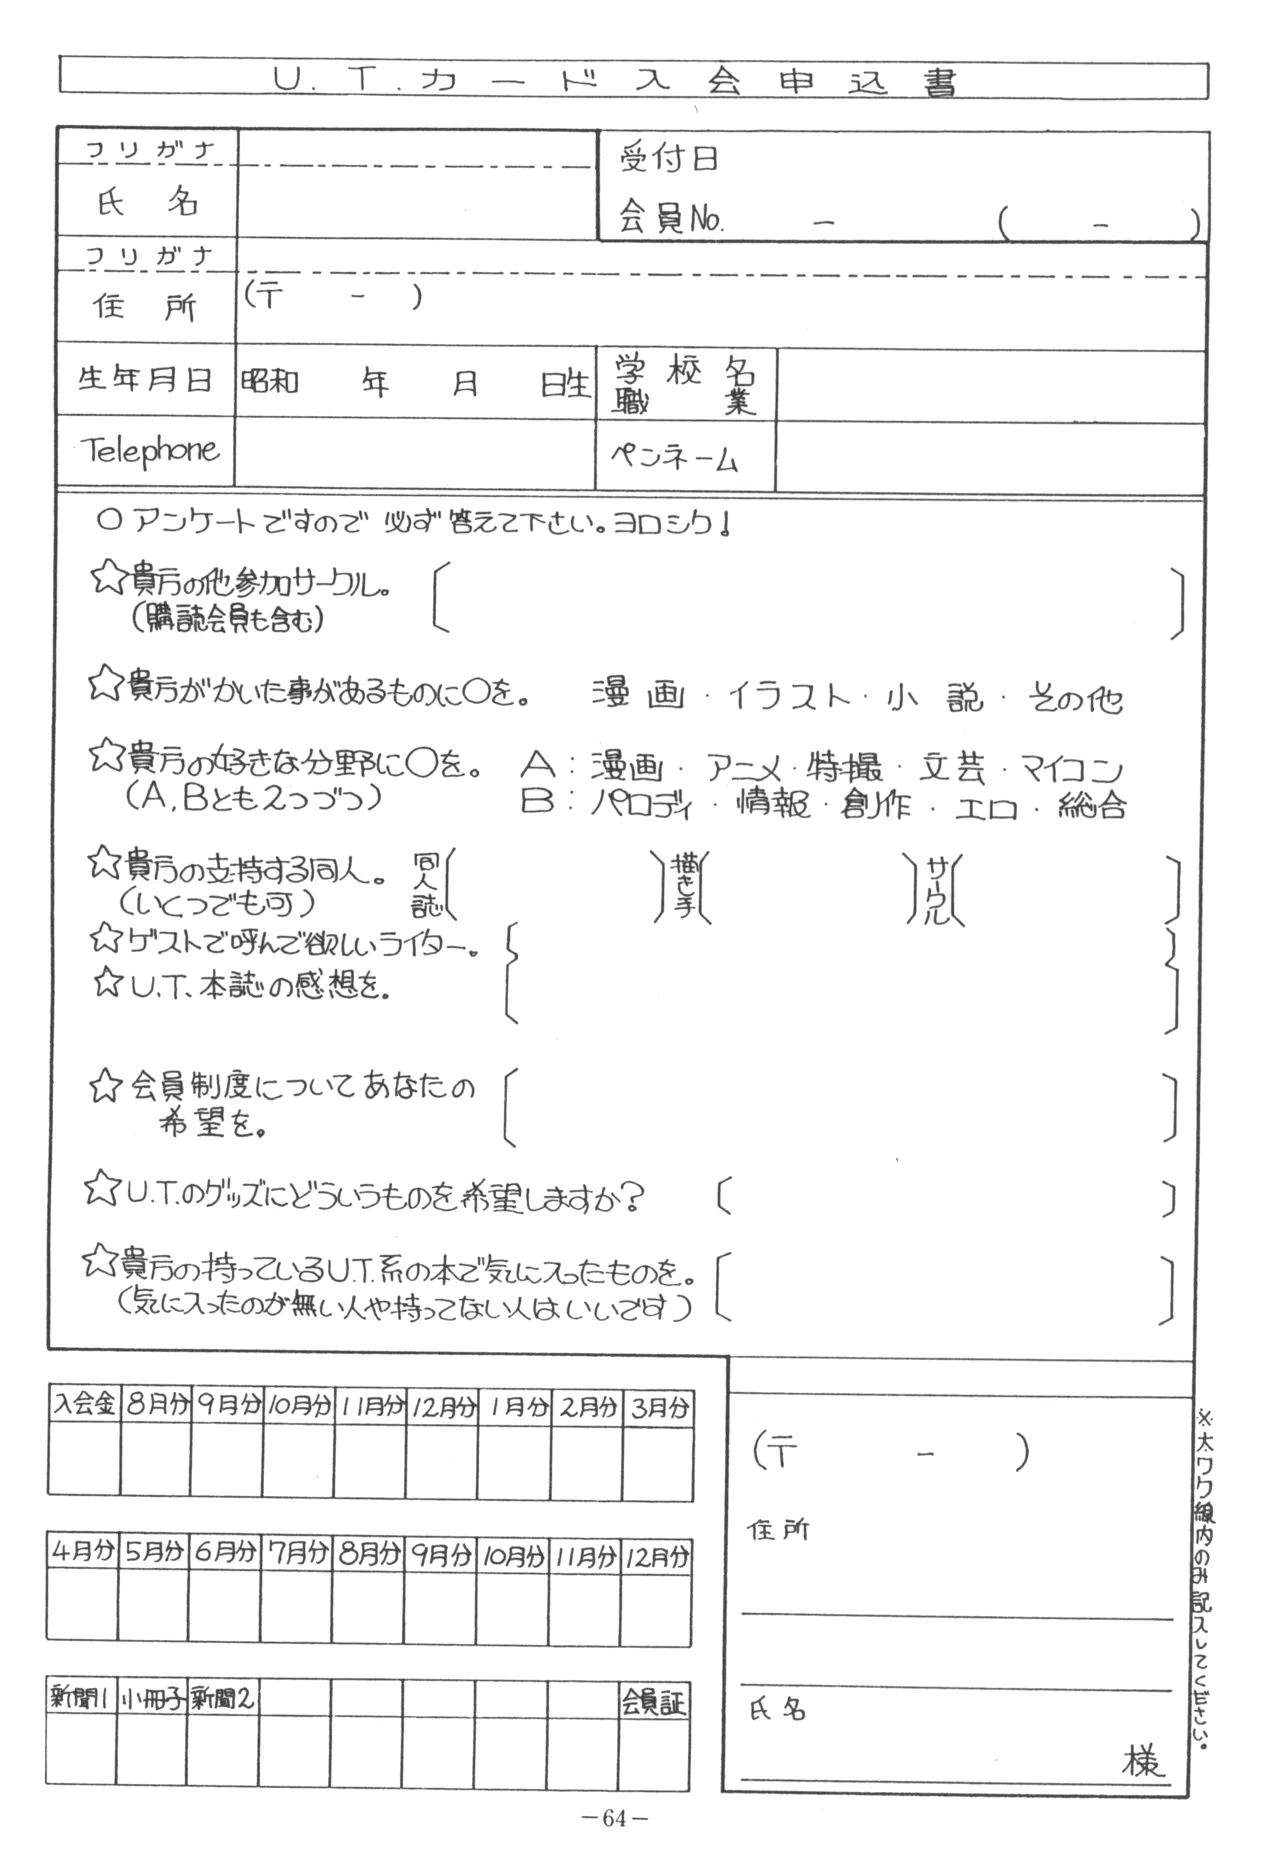 U.T.カード入会申込書
フリガナ
氏名
受付日
会員No. - ( - )
フリガナ
住所
(〒 - )
生年月日
昭和 年 月 日生
学校名
職業
Telephone
ペンネーム
○アンケートですので必ず答えて下さい。ヨロシク!
☆貴方の他参加サークル。
(購読会員も含む)
☆貴方がかいた事があるものに○を。 漫画・イラスト・小説・その他
☆貴方の好きな分野に○を。 A:漫画・アニメ・特撮・文芸・マイコン
(A,Bとも2つづつ) B:パロディ・情報・創作・エロ・総合
☆貴方の支持する同人。
(いくつでも可)
同人誌
描き手
サークル
☆ゲストで呼んで欲しいライター。
☆U.T.本誌の感想を。
☆会員制度についてあなたの
希望を。
☆U.T.のグッズにどういうものを希望しますか?
☆貴方の持っているU.T.系の本で気に入ったものを。
(気に入ったのが無い人や持ってない人はいいです)
入会金 8月分 9月分 10月分 11月分 12月分 1月分 2月分 3月分
4月分 5月分 6月分 7月分 8月分 9月分 10月分 11月分 12月分
新聞1 小冊子 新聞2 会員証
(〒 - )
住所
氏名
様
※太ワク線内のみ記入してください。
-64-